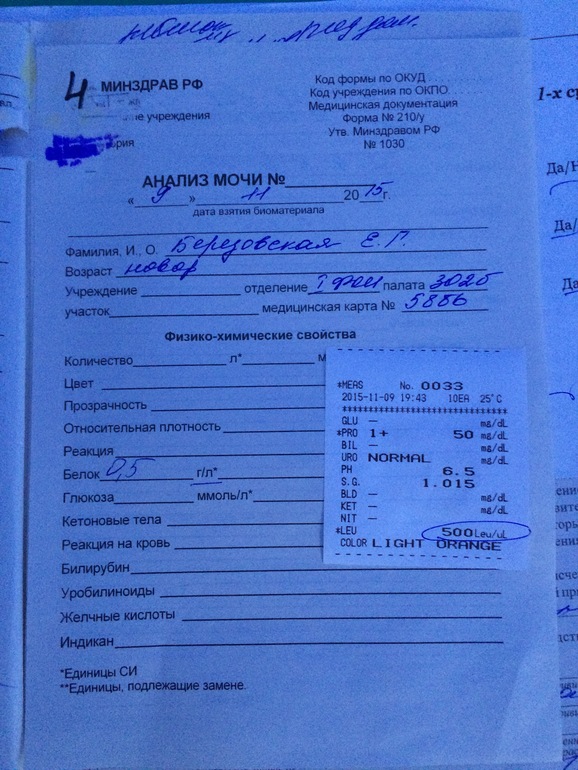 4 МИНЗДРАВ РФ
учреждения
Код формы по ОКУД
Код учреждения по ОКПО
Медицинская документация
Форма № 210/у
Утв. Минздравом РФ
№ 1030
АНАЛИЗ МОЧИ №
« 9 » 11 2015г.
дата взятия биоматериала
Фамилия, И., О. Березовская Е. Г.
Возраст новор
Учреждение отделение I физ палата 302б
участок медицинская карта № 5886
Физико-химические свойства
Количество л*
Цвет
Прозрачность
Относительная плотность
Реакция
Белок 0,5 г/л*
Глюкоза ммоль/л*
Кетоновые тела
Реакция на кровь
Билирубин
Уробилиноиды
Желчные кислоты
Индикан
*Единицы СИ
**Единицы, подлежащие замене.
*MEAS No. 0033
2015-11-09 19:43 10EA 25°C
********************************
GLU – mg/dL
*PRO 1+ 50 mg/dL
BIL – mg/dL
URO NORMAL mg/dL
PH 6.5
S.G. 1.015
BLD – mg/dL
KET – mg/dL
NIT –
*LEU 500Leu/uL
COLOR LIGHT ORANGE
1-х
Да/Н
Да/
Да